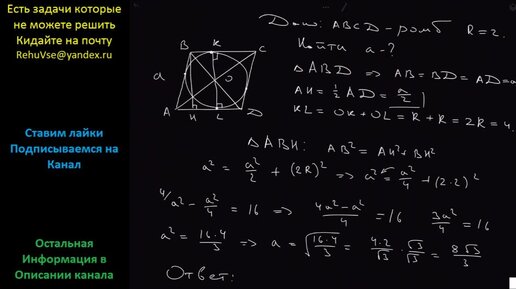 Есть задачи которые
не можете решить
Кидайте на почту
RehuVse@yandex.ru
Ставим лайки
Подписываемся на
Канал
Остальная
Информация в
Описании канала
B K C
a O
A H L D
Дано: ABCD - ромб R = 2.
Найти a - ?
△ ABD ⇒ AB = BD = AD = a
AH = ½ AD = a/2
KL = OK + OL = R + R = 2R = 4.
△ ABH: AB² = AH² + BH²
a² = a²/2 + (2R)² ⇒ a² = a²/4 + (2·2)²
4/ a² - a²/4 = 16 ⇒ (4a² - a²)/4 = 16 3a²/4 = 16
a² = 16·4/3 ⇒ a = √(16·4/3) = 4·2/√3 · √3/√3 = 8√3/3
Ответ: